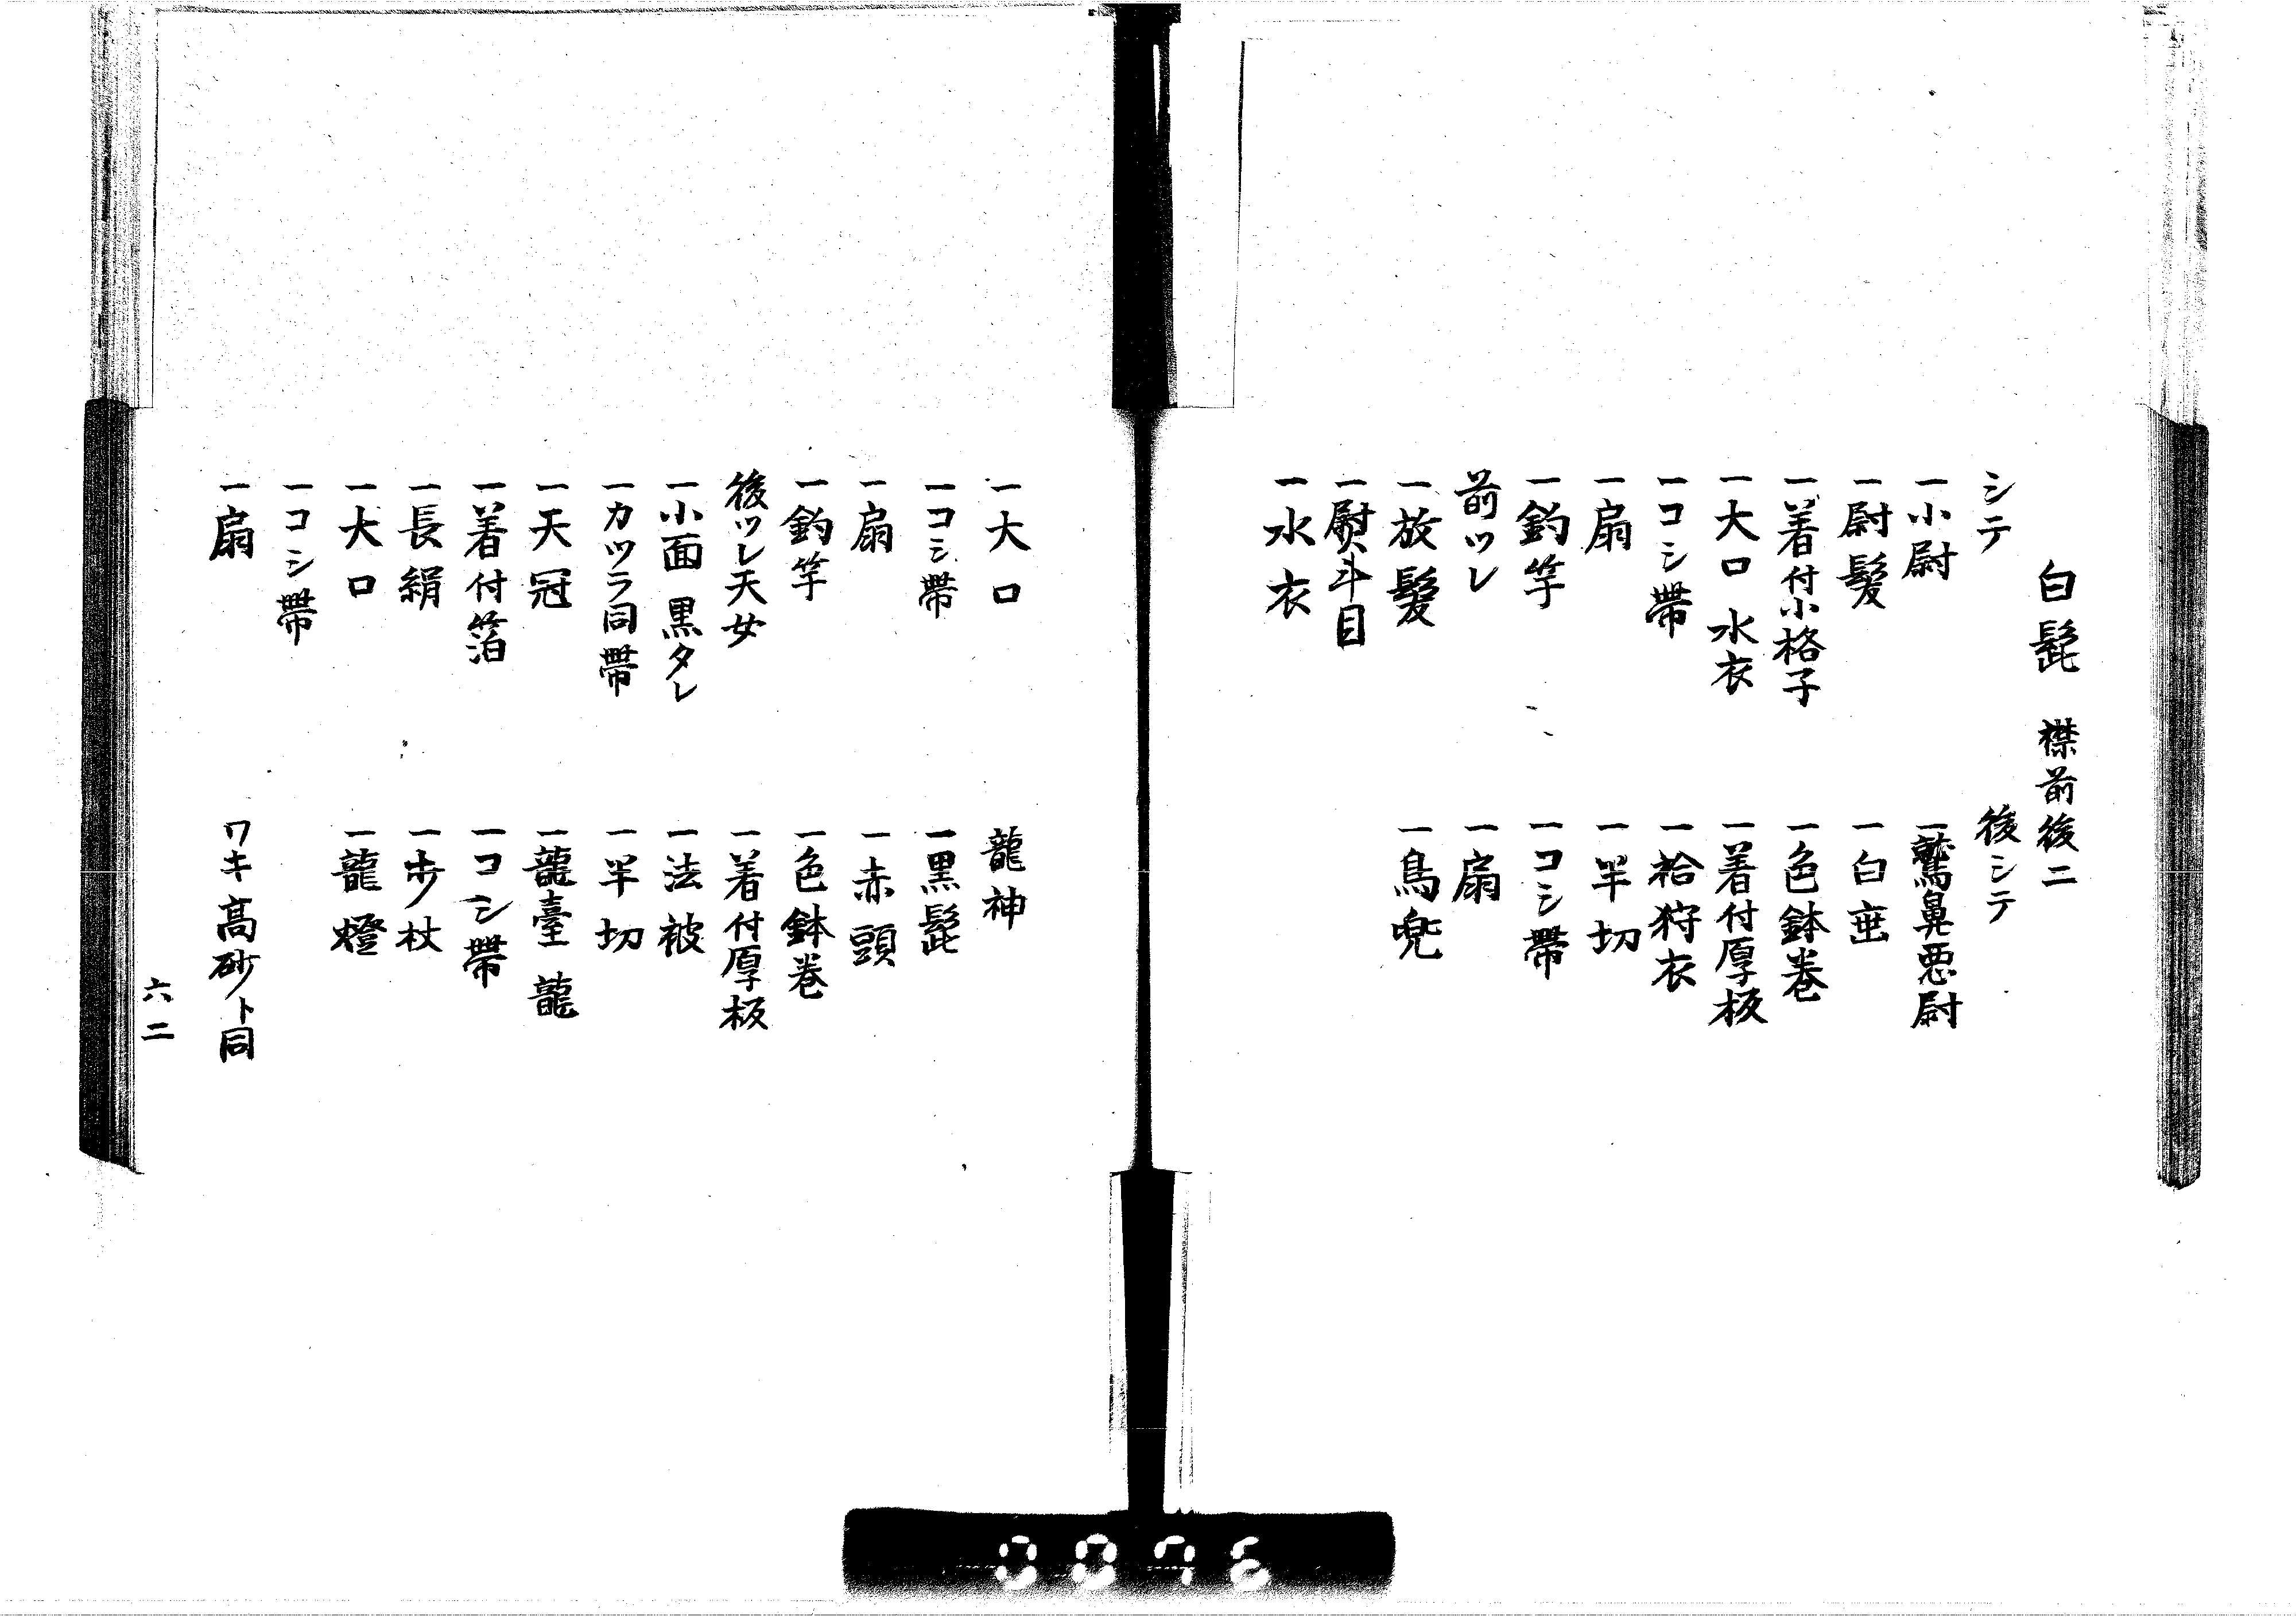 白髭　襟前後二
シテ
一小尉
一尉髪
一着付小格子
一大口　水衣
一コシ帯
一扇
一釣竿
前ツレ
一放髪
一熨斗目
一水衣
後シテ
一鷲鼻悪尉
一白垂
一色鉢巻
一着付厚板
一袷狩衣
一半切
一コシ帯
一扇
一鳥兜
一大口
一コシ帯
一扇
一釣竿
後ツレ天女
一小面　黒タレ
一カツラ同帯
一天冠
一着付箔
一長絹
一大口
一コシ帯
一扇
龍神
一黒髭
一赤頭
一色鉢巻
一着付厚板
一法被
一半切
一龍臺　龍
一コシ帯
一歩杖
一龍燈
ワキ高砂ト同
六二